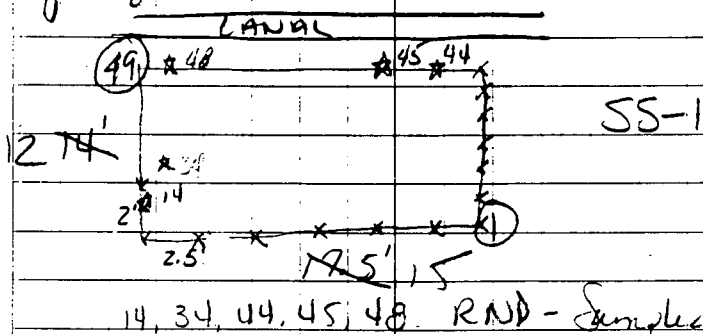 CANAL
49 48 45 44
SS-1
12 14'
34
14
2' 1
2.5'
17.5' 15
14, 34, 44, 45, 48 RND - Samples